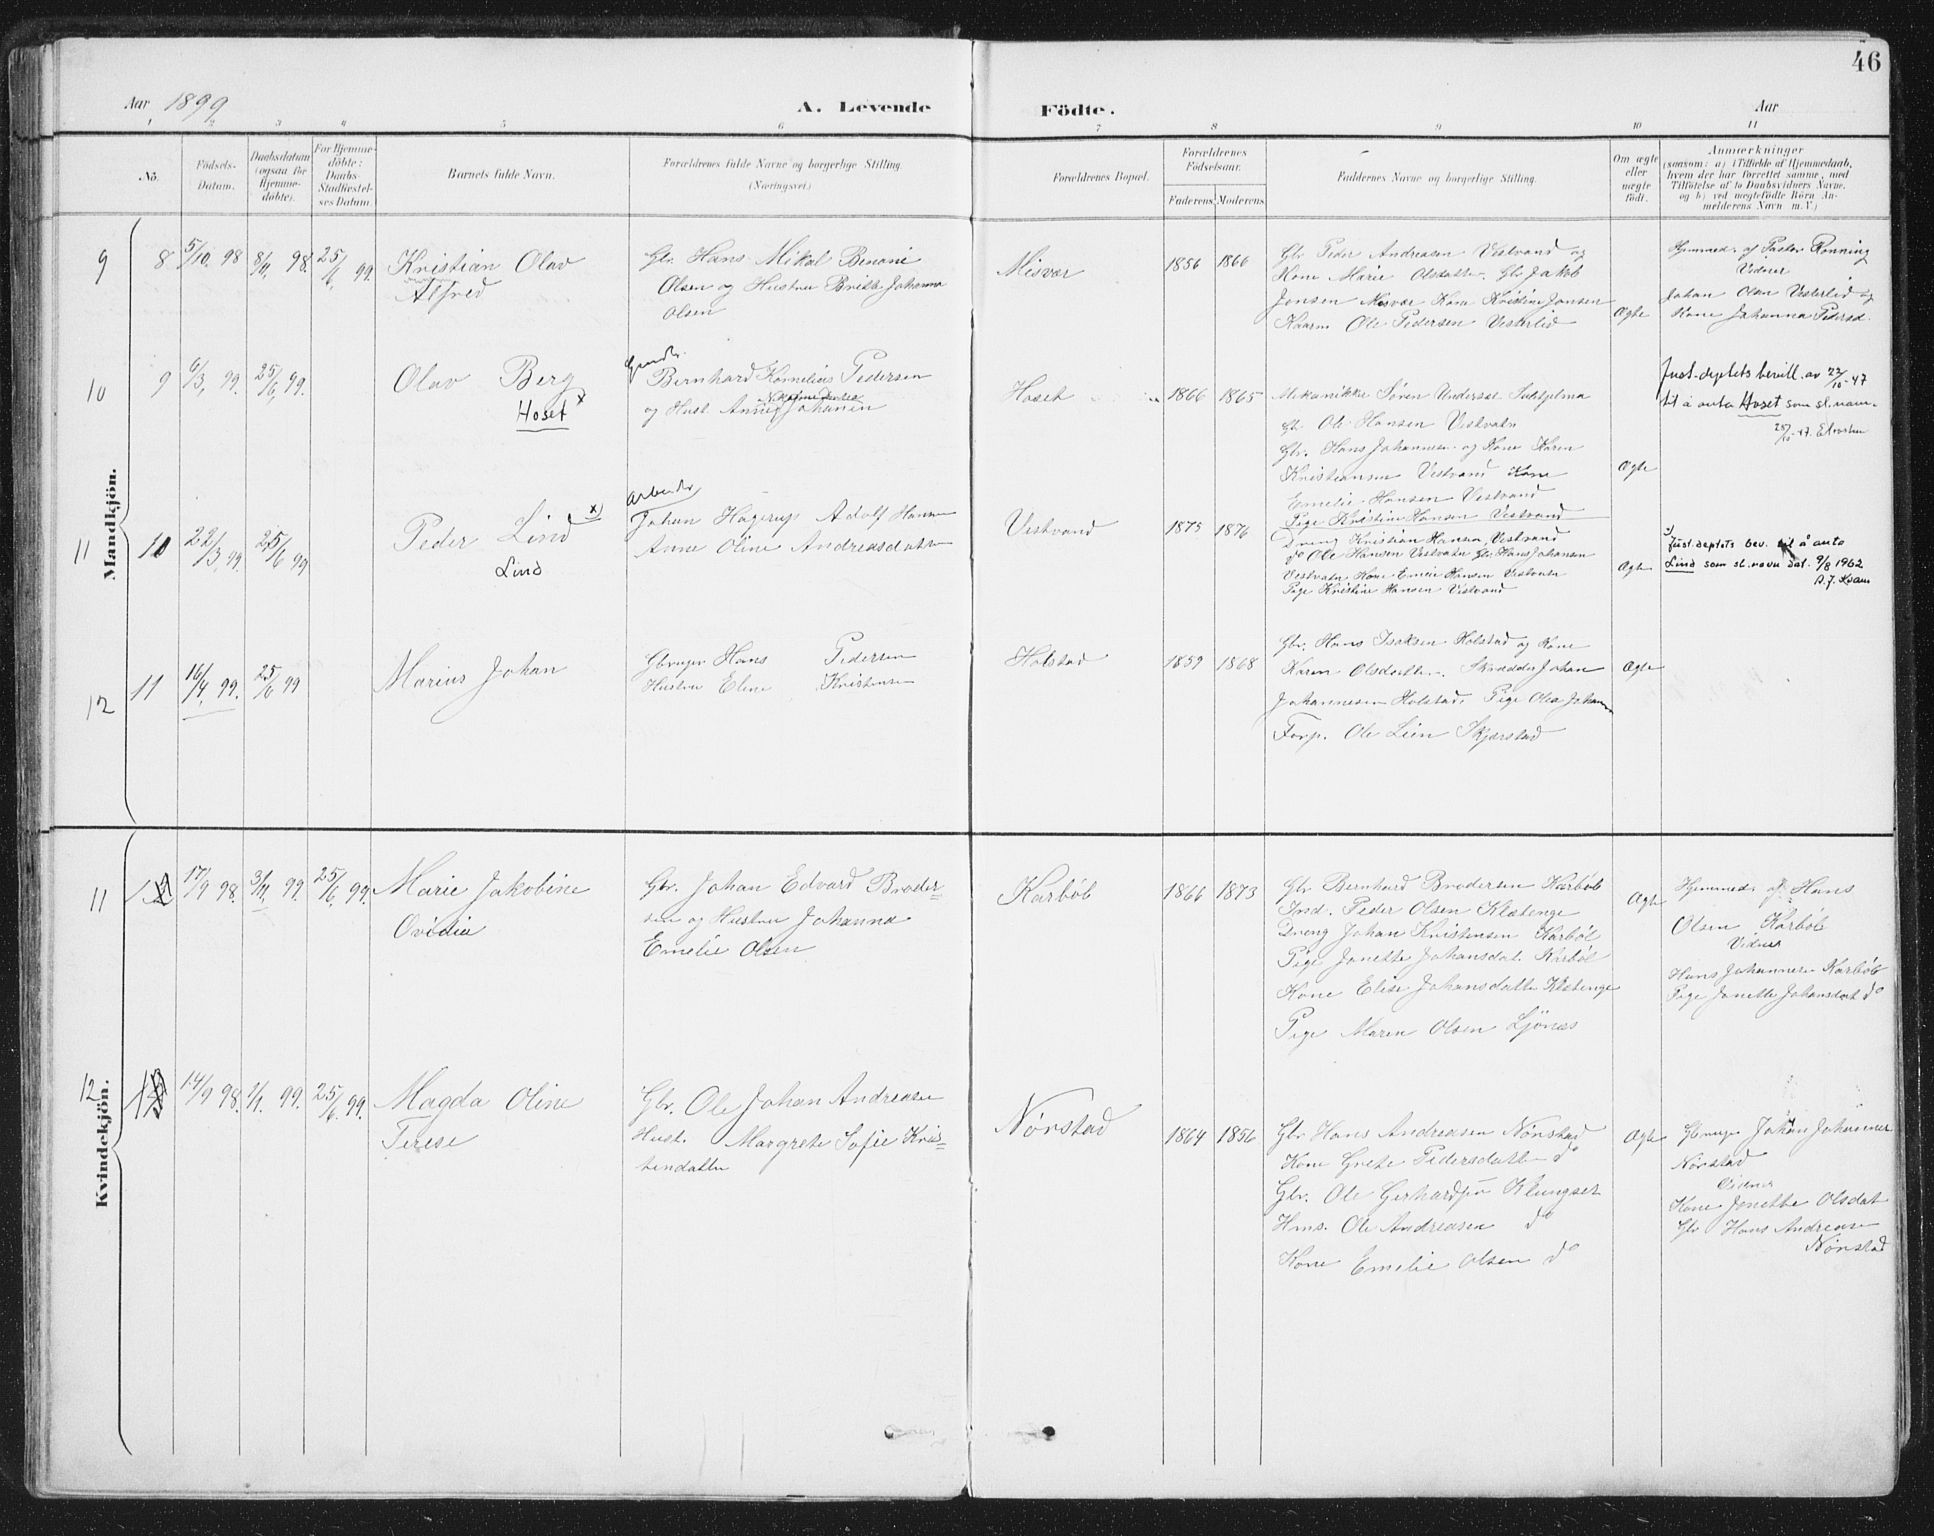 46
Aar 1899
A. Levende
Födte.
Aar
1 2 3 4 5 6 7 8 9 10 11
No.
Födsels-
Datum.
Daabsdatum
(ogsaa for
Hjemme-
döbte).
For Hjemme-
döbte:
Daabs-
Stadfæstel-
ses Datum.
Barnets fulde Navn.
Forældrenes fulde Navne og borgerlige Stilling.
(Næringsvei.)
Forældrenes Bopæl.
Forældrenes
Födselsaar.
Faderens. Moderens.
Faddernes Navne og borgerlige Stilling.
Om ægte
eller
uægte
födt.
Anmærkninger
(saasom: a) i Tilfælde af Hjemmedaab,
hvem der har forrettet samme, med
Tilföielse af to Daabsvidners Navne,
og b) ved uægtefödte Börn An-
melderens Navn m. V.)
Mandkjön.
9 8 5/10 98 8/11 98. 25/6 99.
Kristian Olav
Alfred
Gbr. Hans Mikal Benoni
Olsen og Hustru Berette Johanna
Olsen
Misvær
1856 1866
Gbr Peder Andreasen Vestvand og
Kone Marie Olsdatter. Gbr Jakob
Jonsen Misvær Kone Kristine Jonsen
Kaarm Ole Pedersen Vesterlid
Ægte
Hjemmed. af Pastor Rønning
Vidner
Johan Olsen Vesterlid og
Kone Johanna Pedersd.
10 9 6/3, 99. 25/6, 99.
Olav Berg
Hoset x
Gaardbr.
Bernhard Kornelius Pedersen
Nikodemusen
og Hust. Anne Johanne
Hoset
1866 1865
Mekanikker Søren Anderset Sulitjelma
Gb Ole Hansen Vestvatn
Gbr. Hans Johannesen og Kone Karen
Kristiansen Vestvand Kone
Emelie Hansen Vestvand
Pige Kristine Hansen Vestvand
Ægte
Just.deptets bevill. av 22/10-47
til å anta Hoset som sl.navn.
25/10-47.
11 10 22/3, 99. 25/6 99
Peder Lind x)
Lind
Arbeider
Johan Hagerup Adolf Hansen
Anne Oline Andreasdatter
Vestvand
1875 1876
Dreng Kristian Hansen, Vestvand
do Ole Hansen Vestvatn Gbr Hans Johansen
Vestvatn Kone Emelie Hansen Vestvatn
Pige Kristine Hansen Vestvand
Ægte
x) Just.deptets bev. til å anta
Lind som sl.navn dat. 9/8 1962
A.J. Kvam
12 11 16/4, 99. 25/6 99
Marius Johan
Gbruger Hans Pedersen
Hustru Eline Kristensen
Holstad
1859 1868
Gbr. Hans Isaksen Holstad og Kone
Karen Olsdatter. Skrædder Johan
Johannesen Holstad, Pige Olea Johann
Forp. Ole Lien Skjærstad
Ægte
Kvindekjön.
11 17/9 98. 3/11 99. 25/6, 99.
Marie Jakobine
Ovidia
Gbr. Johan Edvard Broder-
sen og Hustru Johanna
Emelie Olsen
Karbøl
1866 1873
Gbr Bernhard Brodersen Karbøl
Ind. Peder Olsen Kløtenge
Dreng Johan Kristensen Karbøl
Pige Jonette Johansdat. Karbøl
Kone Elise Johansdatter Kløtenge
Pige Maren Olsen Ljönes
Ægte
Hjemmed. af Hans
Olsen Karbøl
Vidner
Hans Johannesen Karbøl
Pige Jonette Johansdat do
12 14/9 98. 1/1. 99. 25/6, 99.
Magda Oline
Terese
Gbr. Ole Johan Andreasen
Hust. Margrete Sofie Kris-
tendatter
Nørstad
1864 1856
Gbr Hans Andreasen Nørstad
Kone Grete Pedersdatter do
Gbr. Ole Gerhard Klungset
Hms. Ole Andreasen do
Kone Emelie Olsen do
Ægte
Gbruger Johan Johannes
Nørstad
Vidner
Kone Jonette Olsdat
Gbr Hans Andreasen
Nørstad